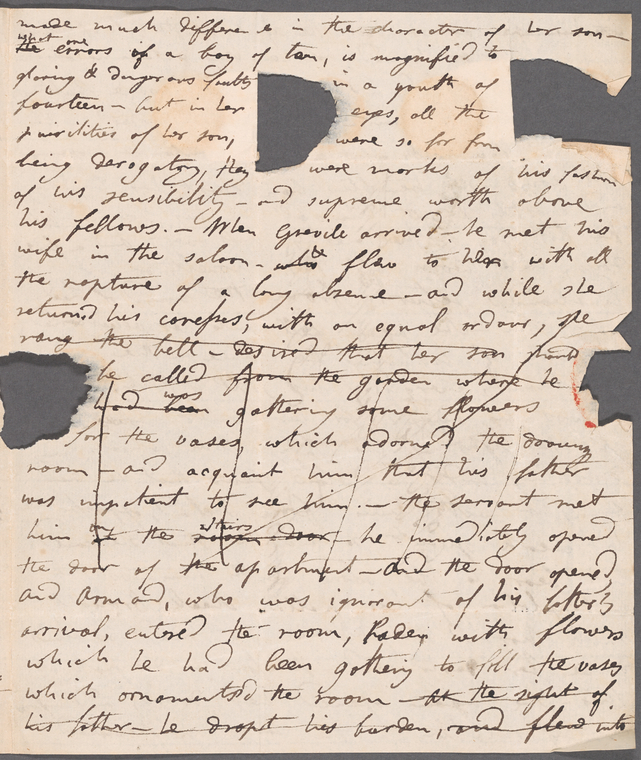 made much difference in the character of her son—
what one
The errors of a boy of ten, is magnified to
glaring & dangerous faults in a youth of
fourteen — but in her eyes, all the
puirilities of her son, were so far from
being derogatory, they were marks of his fashion
of his sensibility — and supreme worth above
his fellows. — When Grevile arrived — he met his
wife in the saloon — who flew to her with all
the rapture of a long absence — and while she
returned his caresses, with an equal ardour, she
rang the bell — desired that her son should
be called from the garden where he
was
had been gathering some flowers
for the vases, which adorned the drawing
room — and acquaint him that his father
was impatient to see him. — the servant met
on stairs
him at the room door — he immediately opened
the door of the apartment — and the door opened,
and Armand, who was ignorant of his father's
arrival, entered the room, laden with flowers
which he had been gathering to fill the vases
which ornamented the room — At the sight of
his father — he dropt his burden, and flew into